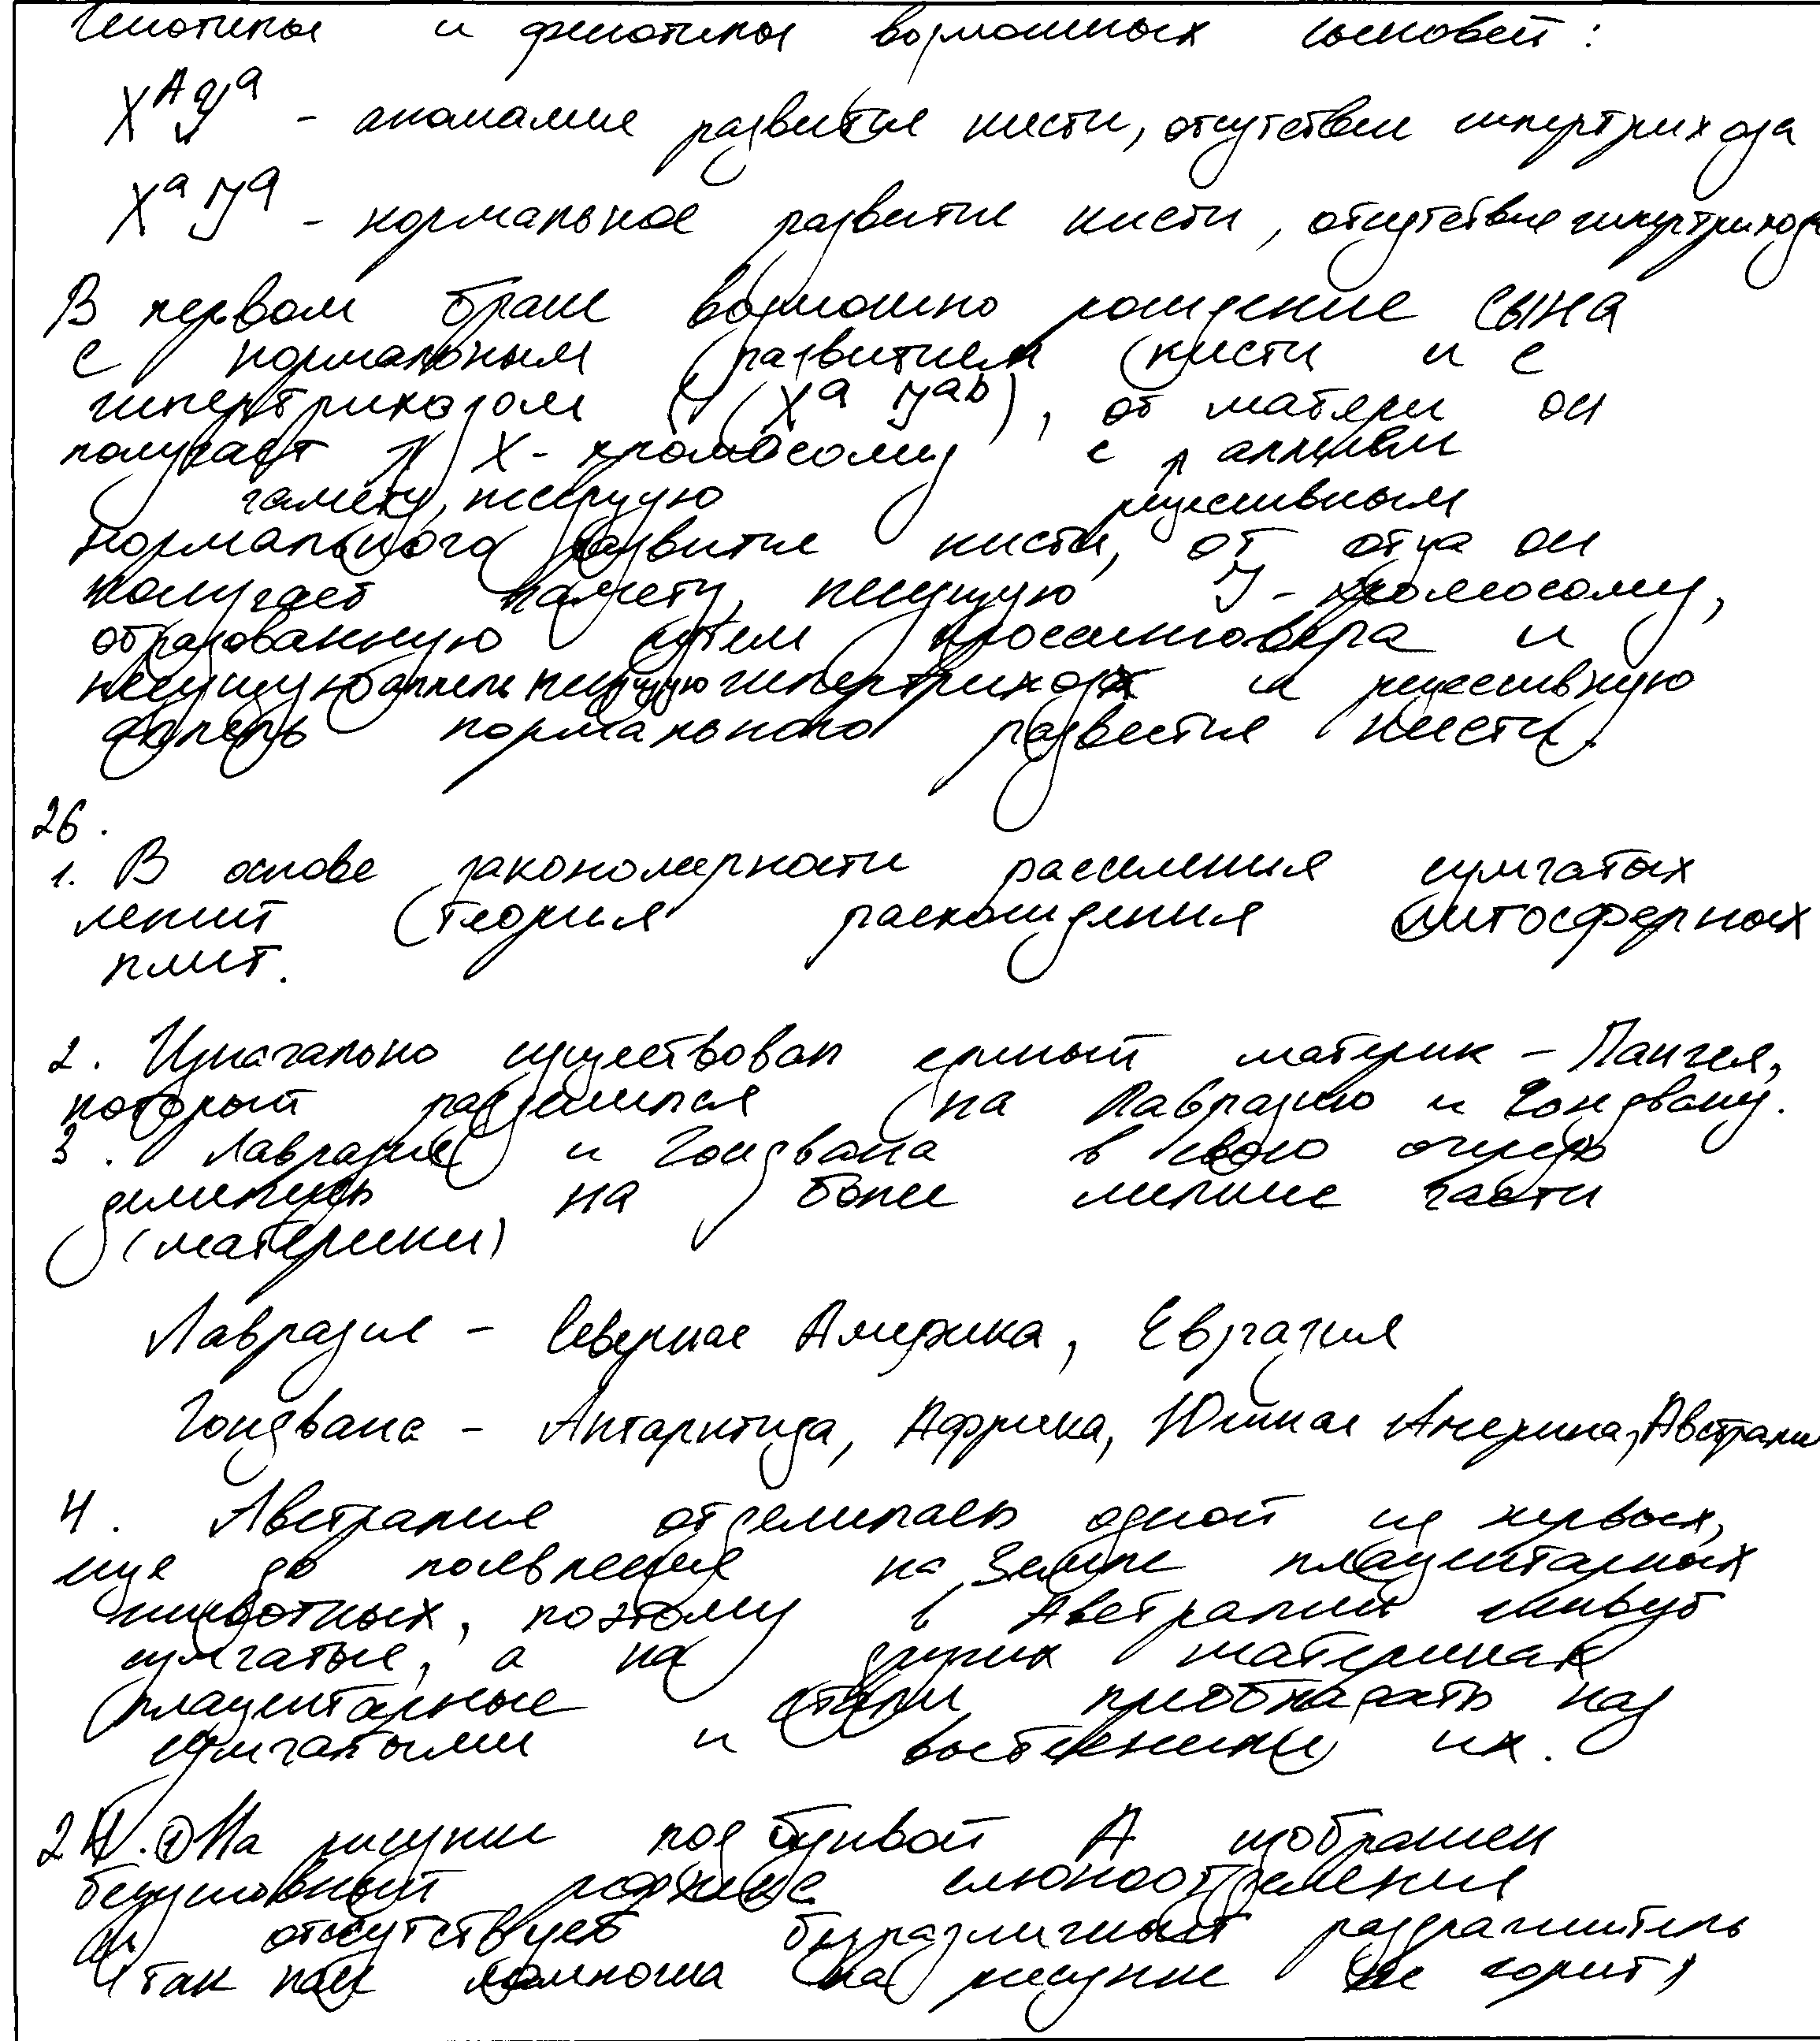 Генотипы и фенотипы возможных сыновей:
XᴬYᵃ - аномалия развития кисти, отсутствие гипертрихоза
XᵃYᵃ - нормальное развитие кисти, отсутствие гипертрихоза
В первом браке возможно рождение сына
с нормальным развитием кисти и с
гипертрихозом (Xᵃ Yᵃᵇ), от матери он
получает X-хромосому с аллелем
гамету, несущую рецессивным
нормального развития кисти, от отца он
получает гамету, несущую Y-хромосому,
образованную путем кроссинговера и
несущую аллель гипертрихоза и рецессивную
аллель нормального развития кисти.
26.
1. В основе закономерности расселения сумчатых
лежит теория расхождения литосферных
плит.
2. Изначально существовал единый материк - Пангея,
который разделился на Лавразию и Гондвану.
3. Лавразия и Гондвана в свою очередь
делились на более мелкие части
(материки)
Лавразия - Северная Америка, Евразия
Гондвана - Антарктида, Африка, Южная Америка, Австралия
4. Австралия отделилась одной из первых,
еще до появления на Земле плацентарных
животных, поэтому в Австралии живут
сумчатые, а на других материках
плацентарные стали преобладать над
сумчатыми и вытеснили их.
24. ① На рисунке под буквой А изображен
безусловный рефлекс слюноотделения
отсутствует безразличный раздражитель
(так как лампочка на рисунке не горит)